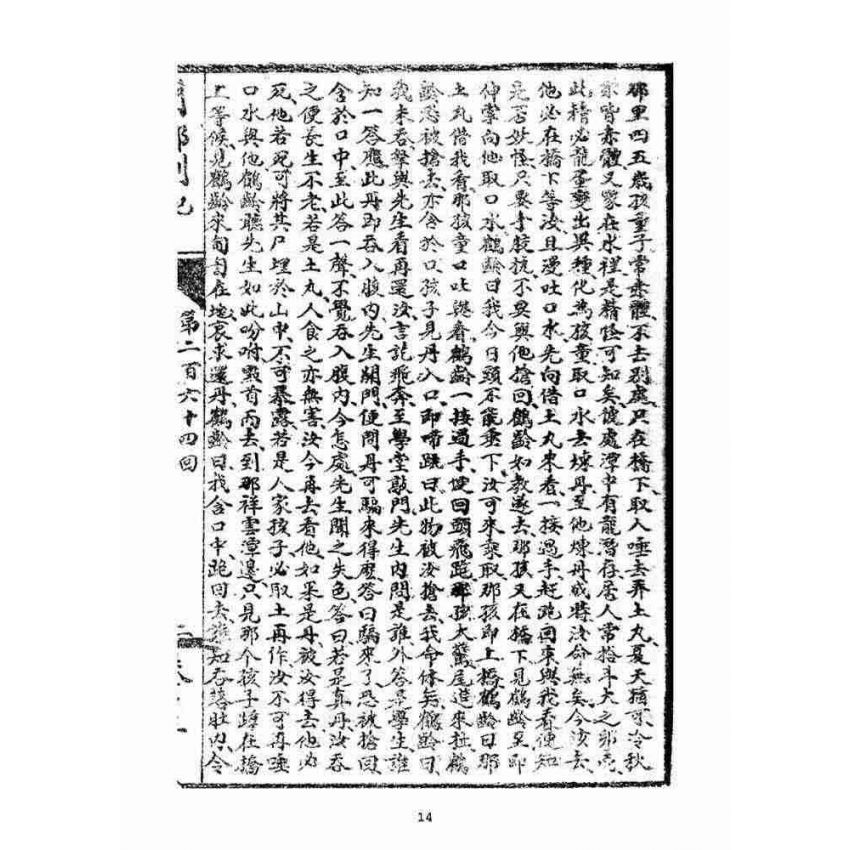 那里四五歲孩童子常赤體不去別處只在橋下取人唾去弄土丸夏天猶可冷秋
皆赤體又家在水裡是精怪可知矣彼處潭中有龍潛存居人常拾斗大之卵
此精必龍蛋變出異種化為孩童取口水去煉丹至他煉丹成特汝命無矣今汝去
他必在橋下等汝且漫吐口水先向借土丸來看一接過手趕跑回來與我看便知
是否妖怪只要手腳抗不畏與他搶回鶴齡如教遂去那孩又在橋下見鶴齡至即
伸掌向他取口水鶴齡曰我今日頭不能垂下汝可來乘取那孩即上橋鶴齡曰那
土丸借我看那孩童口吐與看鶴齡一接過手便回頭飛跑那孩大驚尾追來扯鶴
齡恐被搶去亦含於口孩子見丹入口即啼跳曰此物被汝搶去我命休矣鶴齡曰
我來吞拏與先生看再還汝言訖飛奔至學堂敲門先生內問是誰外答是學生誰
知一答應此丹即吞入腹內先生開門便問丹可騙來得麽答曰騙來了恐被搶回
含於口中至此答一聲不覺吞入腹內今怎處先生聞之失色答曰若是真丹汝吞
之便長生不老若是土丸人食之亦無害汝今再去看他如果是丹被汝得去他必
死他若死可將其尸埋於山中不可暴露若是人家孩子必取土再作汝不可再唾
口水與他鶴齡聽先生如此吩咐點首而去到那祥雲潭邊只見那个孩子踵在橋
上等候見鶴齡來匍匐在地哀求還丹鶴齡曰我含口中跑回去誰知吞落肚內今
閩都別記
第二百六十四回
14